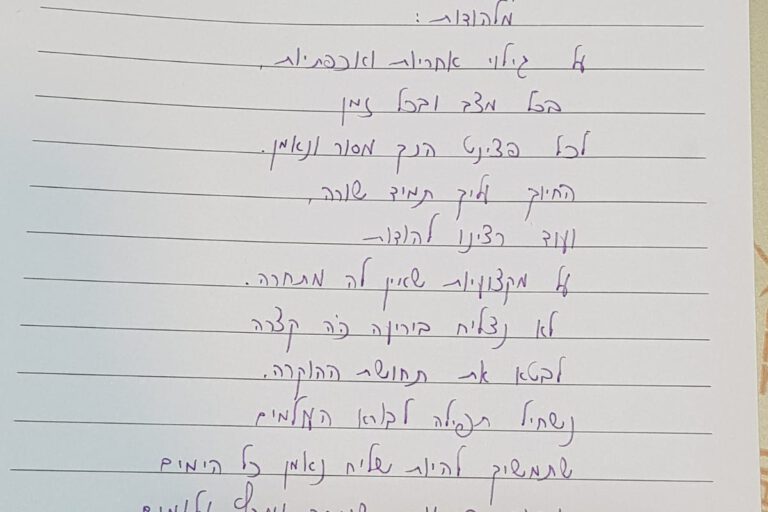 מלהודות:
על גילוי אחריות ואכפתיות,
בכל מצב ובכל זמן
לכל פצינט הנך מסור ונאמן.
החיוך עליך תמיד שורה,
ועוד רצינו להודות
על מקצועיות שאין לה מתחרה.
לא נצליח ביריעה כ"כ קצרה
לבטא את תחושת ההוקרה.
נשחיל תפילה לבורא העולמים
שתמשיך להיות שליח נאמן כל הימים